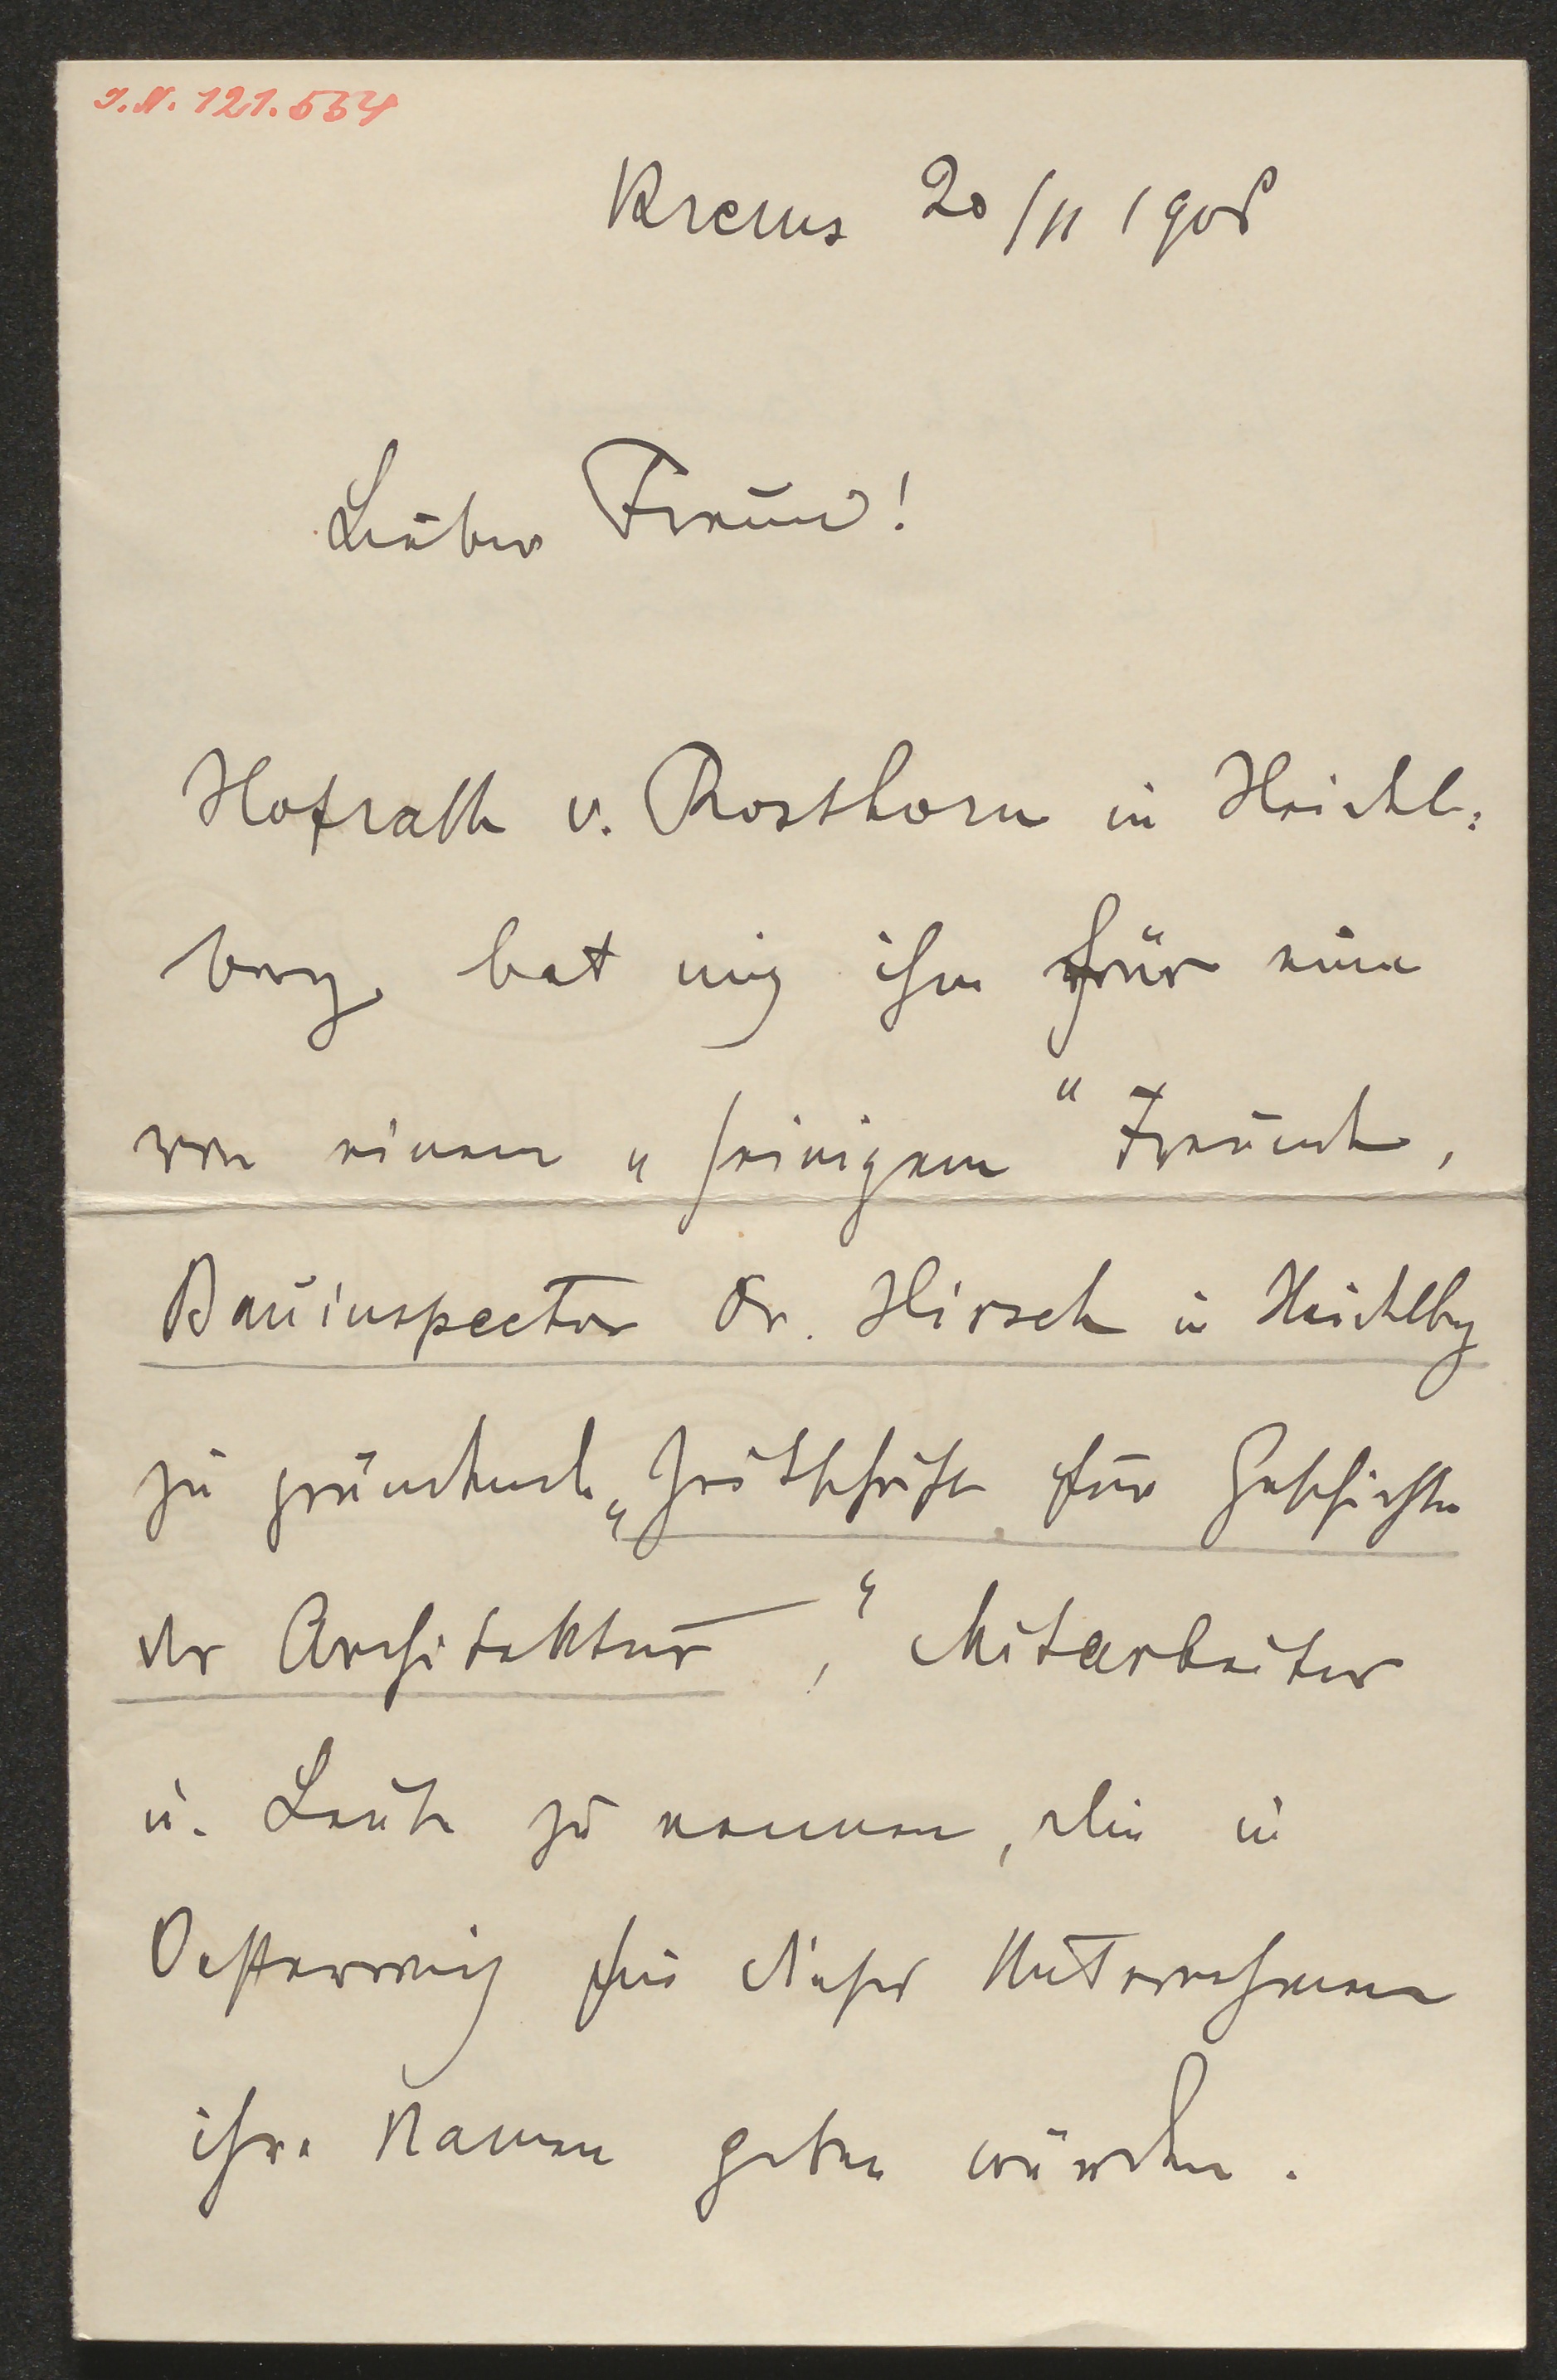 I.N. 121.554
Krems 20/II 1908
Lieber Freund!
Hofrath v. Rosthorn in Heidel-
berg bat mich ihm für eine
von einem „seinigen“ Freunde,
Bauinspector Dr. Hirsch in Heidelbg
zu gründende „Zeitschrift für Geschichte
der Architektur“, Mitarbeiter
u. Leute zu nennen, die in
Oesterreich für dieses Unternehmen
ihre Namen geben würden.